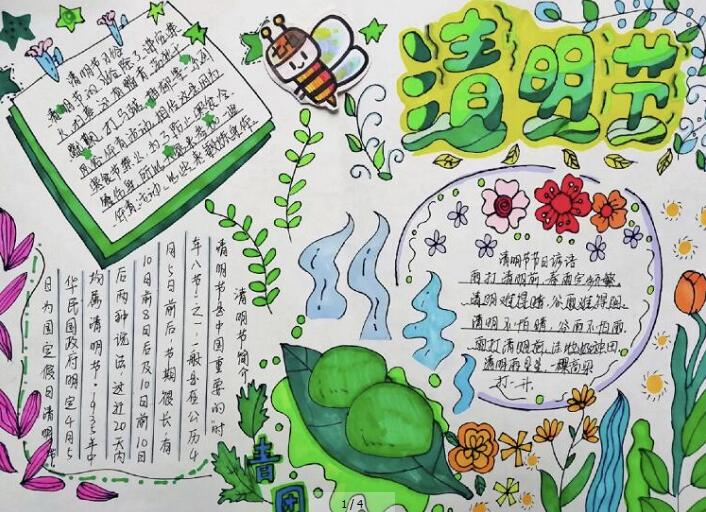 清明节
清明节习俗
清明节的习俗除了讲究禁
火扫墓,还有踏青荡秋千
蹴鞠、打马球、插柳等一系列
风俗体育活动.相传这是因为
寒食节禁火,为了防止寒食冷
餐伤身,所以大家来参加一些
体育活动,以此来锻炼身体。
清明节节日谚语
雨打清明前,春雨定频繁
清明难得晴,谷雨难得阴
清明不怕晴,谷雨不怕雨
雨打清明前,洼地好种田
打一升
清明节简介
清明节是中国重要的时
年八节之一,一般是在公历4
月5日前后,节期很长,有
10日前8日后及10日前10日
后两种说法,这近20天内
均属清明节。1935年中
华民国政府明定4月5
日为国定假日清明节
青
团
1/4